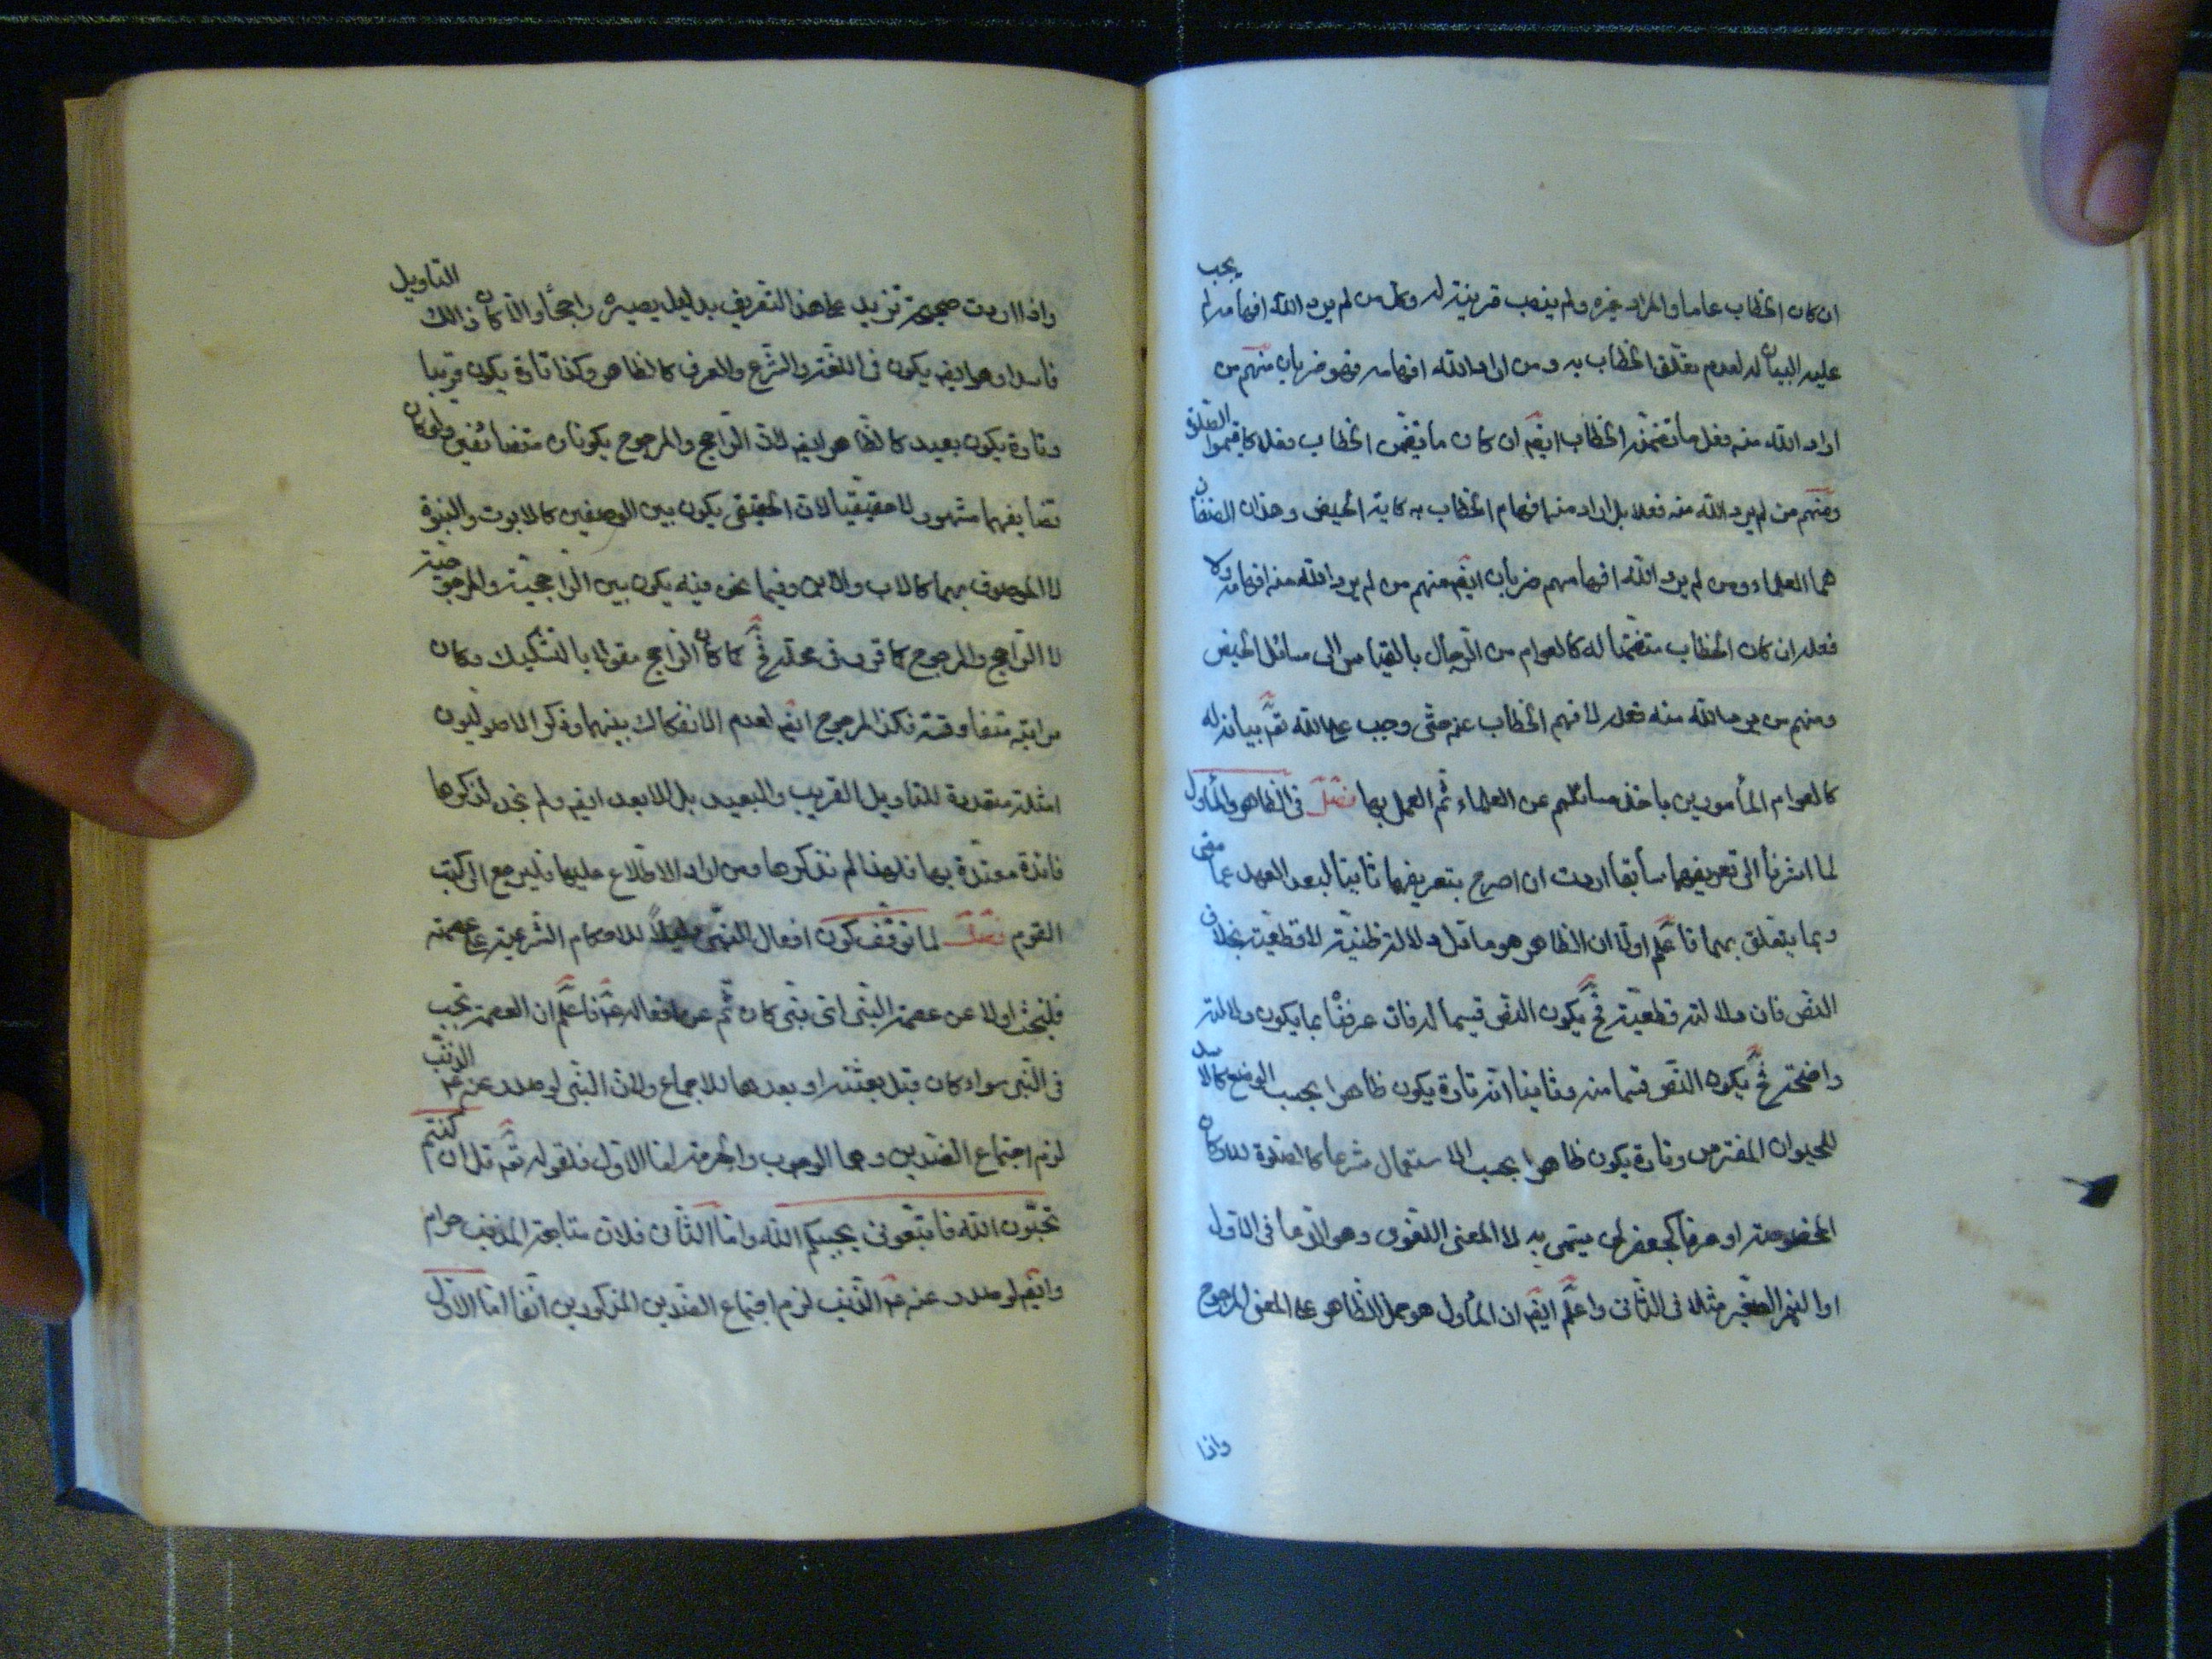 ان كان الخطاب عاما والمراد غيره ولم ينصب قرينة له وكل من لم يرد الله افهامه لم يجب
عليه البيان له لعدم تعلق الخطاب به ومن اراد الله افهامه فهو ضربان منهم من
اراد الله منه فعل ما تضمنه الخطاب ايضم ان كان ما تضمن الخطاب فعلا كاقيموا الصلوة
ومنهم من لم يرد الله منه فعلا بل اراد منه افهام الخطاب به كاية الحيض وهذان الصنفان
هما العلماء ومن لم يرد الله افهامهم ضربان ايضم منهم من لم يرد الله منه افهامه ولا
فعله ان كان الخطاب متضمنا له كالعوام من الرجال بالقياس الى مسائل الحيض
ومنهم من يريد الله منه فعله لا فهم الخطاب عنه حتى وجب على الله تع بيانه له
كالعوام المأمورين باخذ مسائلهم عن العلماء ثم العمل بها فصل في الظاهر والمأول
لما اشرنا الى تعريفهما سابقا اردت ان اصرح بتعريفهما ثانيا لبعد العهد عما مضى
وبما يتعلق بهما فاعلم اولا ان الظاهر هو ما دل دلالة ظنية لا قطعية بخلاف
النص فان دلالته قطعية فح يكون النص قسيما له فان عرفنا بما يكون دلالته
واضحة فح يكون النص قسما منه وثانيا انه تارة يكون ظاهرا بحسب الوضع كالاسد
للحيوان المفترس وتارة يكون ظاهرا بحسب الاستعمال شرعا كالصلوة للاركان
المخصوصة او عرفا كجعفر لمن يتمى به لا المعنى اللغوى وهو الآدما في الاول
او النهر الصغير مثلا في الثاني واعلم ايضم ان المأول هو حمل الظاهر على المعنى المرجوح
واذا
واذا اردت صحيحة تزيد على هذا التعريف بدليل يصيره راجحا والا كان ذالك التاويل
فاسدا وهو ايضم يكون في اللغة والشرع والعرف كالظاهر وكذا تارة يكون قريبا
وتارة يكون بعيدا كالظاهر ايضم لان الراجح والمرجوح يكونان متضائفين ولو كان
تضايفهما مشهوريا لا حقيقيا لان الحقيقى يكون بين الوصفين كالابوت والبنوة
لا الموصوف بهما كالاب والابن وفيما نحن فيه يكون بين الراجحية والمرجوحية
لا الراجح والمرجوح كما قرر في محله فح كما كان الراجح مقولا بالتشكيك وكان
مراتبه متفاوتة فكذا المرجوح ايضم لعدم الانفكاك بينهما وذكر الاصوليون
امثلة متعددة للتاويل القريب والبعيد بل الابعد ايضم ولم نجد لذكرها
فائدة معتدة بها فلهذا لم نذكرها ومن اراد الاطلاع عليها فليرجع الى كتب
القوم فصل لما توقف كون افعال النبى دليلا للاحكام الشرعية على عصمته
فلنبحث اولا عن عصمة النبى اى نبى كان ثم عن افعاله ع فاعلم ان العصمة تجب
في النبى سواء كان قبل بعثته او بعدها للاجماع ولان النبى لو صدر عنه ع الذنب
لزم اجتماع الضدين وهما الوجوب والحرمة اما الاول فلقوله تع قل ان كنتم
تحبون الله فاتبعوني يحببكم الله واما الثاني فلان متابعة المذنب حرام
وايضم لو صدر عنه ع الذنب لزم اجتماع الضدين المذكورين آنفا اما الاول